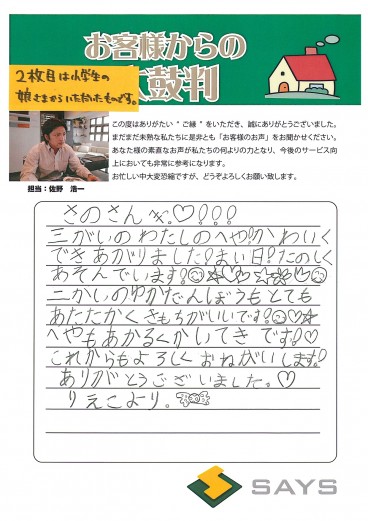 お客様からの
太鼓判
2枚目は小学生の
娘さまからいただいたものです。
この度はありがたい“ご縁”をいただき、誠にありがとうございました。
まだまだ未熟な私たちに是非とも「お客様のお声」をお聞かせください。
あなた様の素直なお声が私たちの何よりの力となり、今後のサービス向
上においても非常に参考になります。
お忙しい中大変恐縮ですが、どうぞよろしくお願い致します。
担当：佐野 浩一
さのさんへ♡!!!
三がいのわたしのへや!かわいく
できあがりました!まい日!たのしく
あそんでいます!
二かいのゆかだんぼうもとても
あたたかくきもちがいいです!
へやもあかるくかいてきです!♡
これからもよろしくおねがいします!
ありがとうございました。♡
りえこより。
SAYS